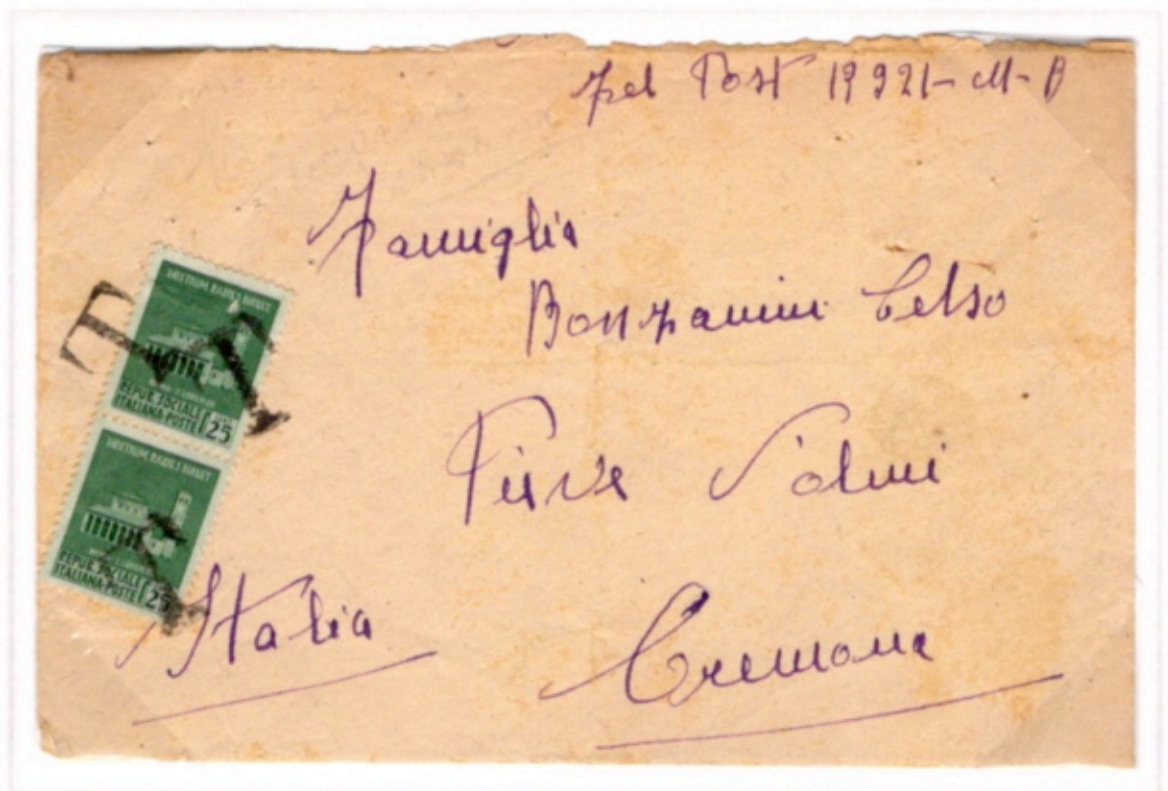 Post 19921-M-B
Famiglia
Bonfanini Celso
Pieve d'Olmi
Italia
Cremona
T
T
T
HOSTIUM RABIES DIRUIT
REPUB. SOCIALE
ITALIANA-POSTE
25
HOSTIUM RABIES DIRUIT
REPUB. SOCIALE
ITALIANA-POSTE
25